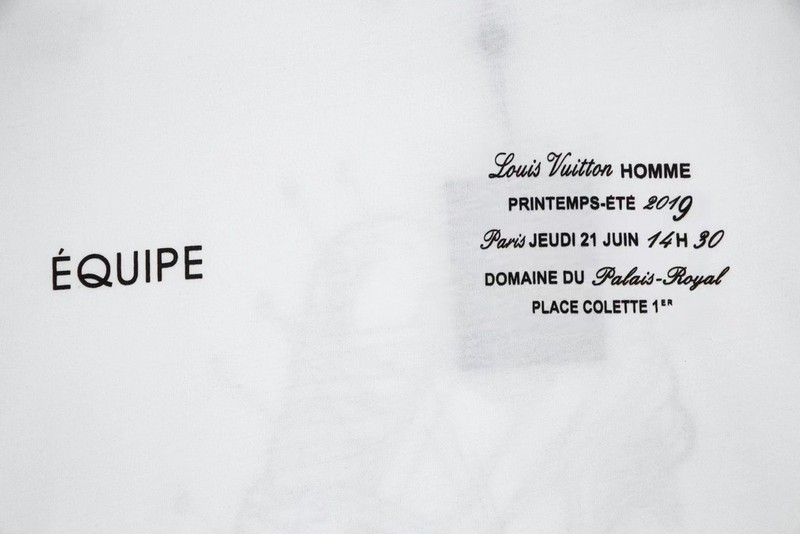 ÉQUIPE
Louis Vuitton HOMME
PRINTEMPS-ÉTÉ 2019
Paris JEUDI 21 JUIN 14H 30
DOMAINE DU Palais-Royal
PLACE COLETTE 1ER